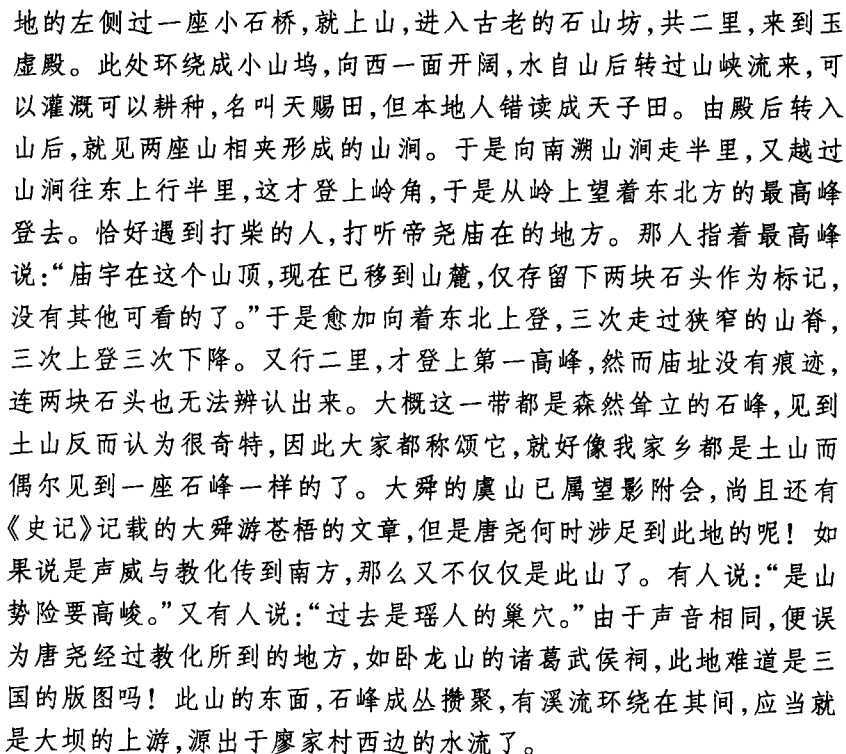 地的左侧过一座小石桥,就上山,进入古老的石山坊,共二里,来到玉
虚殿。此处环绕成小山坞,向西一面开阔,水自山后转过山峡流来,可
以灌溉可以耕种,名叫天赐田,但本地人错读成天子田。由殿后转入
山后,就见两座山相夹形成的山涧。于是向南溯山涧走半里,又越过
山涧往东上行半里,这才登上岭角,于是从岭上望着东北方的最高峰
登去。恰好遇到打柴的人,打听帝尧庙在的地方。那人指着最高峰
说:“庙宇在这个山顶,现在已移到山麓,仅存留下两块石头作为标记,
没有其他可看的了。”于是愈加向着东北上登,三次走过狭窄的山脊,
三次上登三次下降。又行二里,才登上第一高峰,然而庙址没有痕迹,
连两块石头也无法辨认出来。大概这一带都是森然耸立的石峰,见到
土山反而认为很奇特,因此大家都称颂它,就好像我家乡都是土山而
偶尔见到一座石峰一样的了。大舜的虞山已属望影附会,尚且还有
《史记》记载的大舜游苍梧的文章,但是唐尧何时涉足到此地的呢!如
果说是声威与教化传到南方,那么又不仅仅是此山了。有人说:“是山
势险要高峻。”又有人说:“过去是瑶人的巢穴。”由于声音相同,便误
为唐尧经过教化所到的地方,如卧龙山的诸葛武侯祠,此地难道是三
国的版图吗!此山的东面,石峰成丛攒聚,有溪流环绕在其间,应当就
是大坝的上游,源出于廖家村西边的水流了。